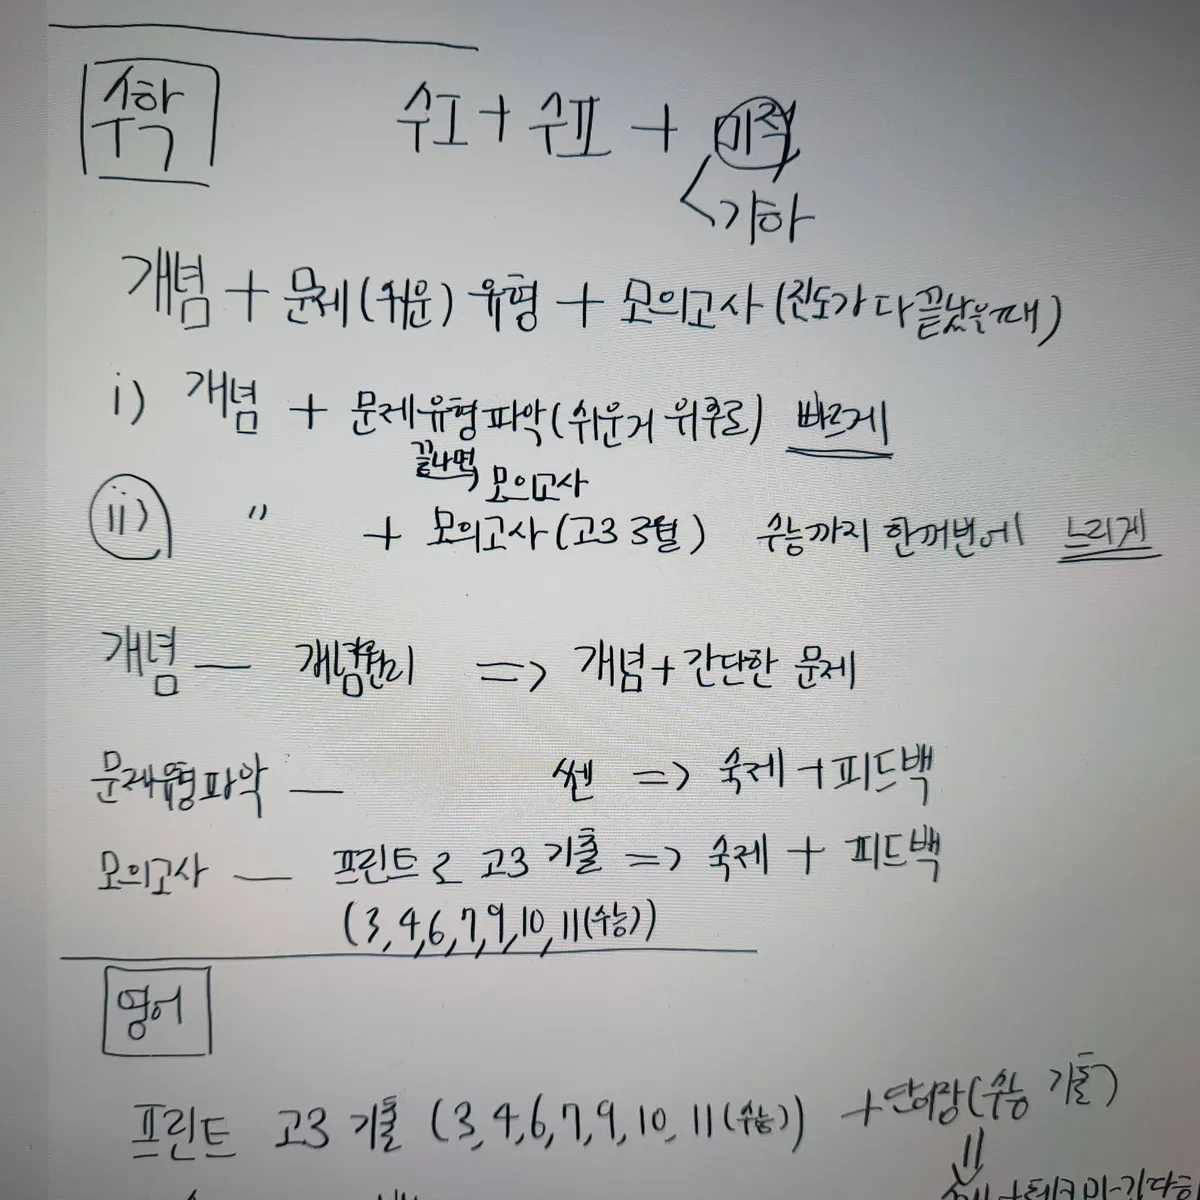 수학
수I + 수II + 미적
기하
개념 + 문제(쉬운) 유형 + 모의고사 (진도가 다 끝났을때)
i) 개념 + 문제유형파악(쉬운거 위주로) 빠르게
끝나면 모의고사
ii) " + 모의고사(고3 3월) 수능까지 한꺼번에 느리게
개념 — 개념원리 => 개념+간단한 문제
문제유형파악 — 쎈 => 숙제+피드백
모의고사 — 프린트로 고3 기출 => 숙제 + 피드백
(3,4,6,7,9,10,11(수능))
영어
프린트 고3 기출 (3,4,6,7,9,10,11(수능)) +단어장(수능 기출)